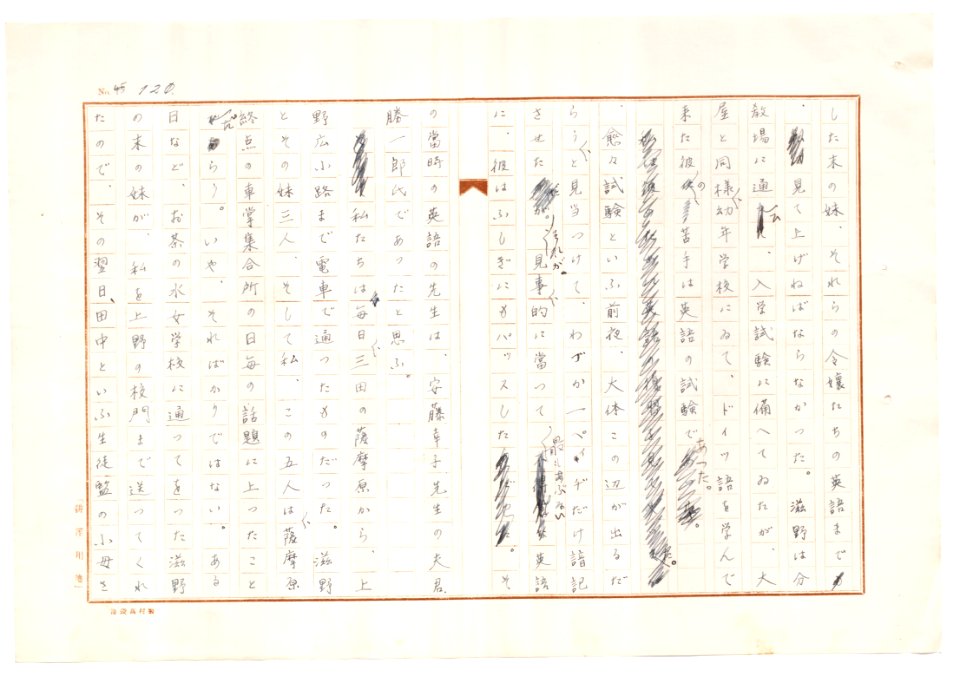 No. 45 120.
した末の妹、それらの令嬢たちの英語まで
見て上げねばならなかつた。滋野は分
教場に通ひ、入学試験に備へてゐたが、大
屋と同様幼年学校にゐて、ドイツ語を学んで
来た彼の苦手は英語の試験であつた。
愈々試験といふ前夜、大体この辺が出るだ
らうと見当つけて、わづか一ペーヂだけ諳記
させた。それが見事的に当つて最もあぶない英語
に、彼はふしぎにもパッスした。そ
の当時の英語の先生は、安藤幸子先生の夫君、
勝一郎氏であつたと思ふ。
私たちは毎日三田の薩摩原から、上
野広小路まで電車で通つたものだつた。滋野
とその妹三人、そして私、この五人は薩摩原
終点の車掌集合所の日毎の話題に上つたこと
だらう。いや、そればかりではない。ある
日など、お茶の水女学校に通つてをつた滋野
の末の妹が、私を上野の校門まで送つてくれ
たので、その翌日、田中といふ生徒監の小母さ